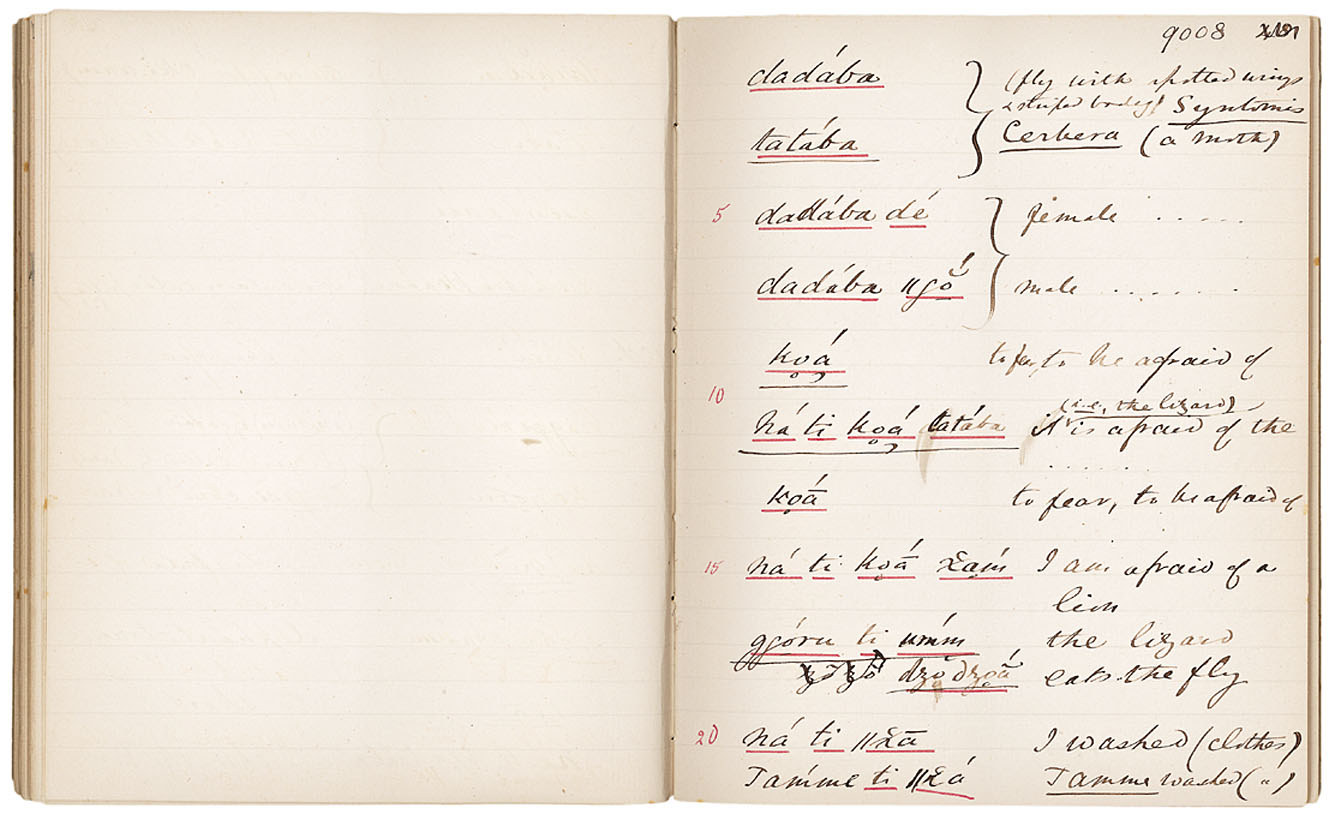 9008
dadába (fly with spotted wings
& striped body) Syntomis
tatába Cerbera (a moth)
5 dadába dé female . . . . .
dadába ‖gŏ́ male . . . . . . .
kọá to fear, to be afraid of
10
(i.e., the lizard)
ná ti kọá tatába it is afraid of the
. . . . . .
kọā́ to fear, to be afraid of
15 ná ti kọā́ χám I am afraid of a
lion
góru ti umm the lizard
dzŏdzoā́ eats the fly
20 ná ti ‖χā I washed (clothes)
Tamme ti ‖χá Tamme washed ( „ )